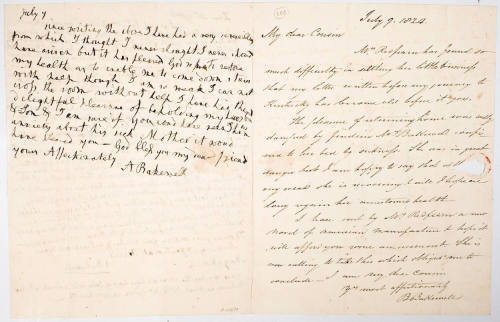 july 7
since writing the above I have had a very
from which I thought I never should
have arisen but it has pleased God to so restore
my health as to enable me to come down stairs
with help though I am so weak I can not
cross the room without help I have had the
delightful pleasure of beholding my
& Son & I am sure if you could have seen his
anxiety about his sick Mother it would
have pleased you – God bless you my friend
yours Affectionately
A Bakewell
July 9. 1824
My dear Cousin
Mr. Redfearn has found so
much difficulty in settling his little business
that my letter written before my journey to
Kentucky has become old before it goes.
The pleasure of returning home was sadly
damped by finding Mrs. Bakewell confi
ned to her bed by sickness. She was in great
danger but I am happy to say that altho
very weak she is recovering & will I hope are
long regain her accustomed health –
I have sent by Mr. Redfearn a new
novel of american manufacture & hope it
will afford you some amusement. He is
now calling to take this which obliges me to
conclude – I am my dear Cousin
Yrs most affectionately
B Bakewell